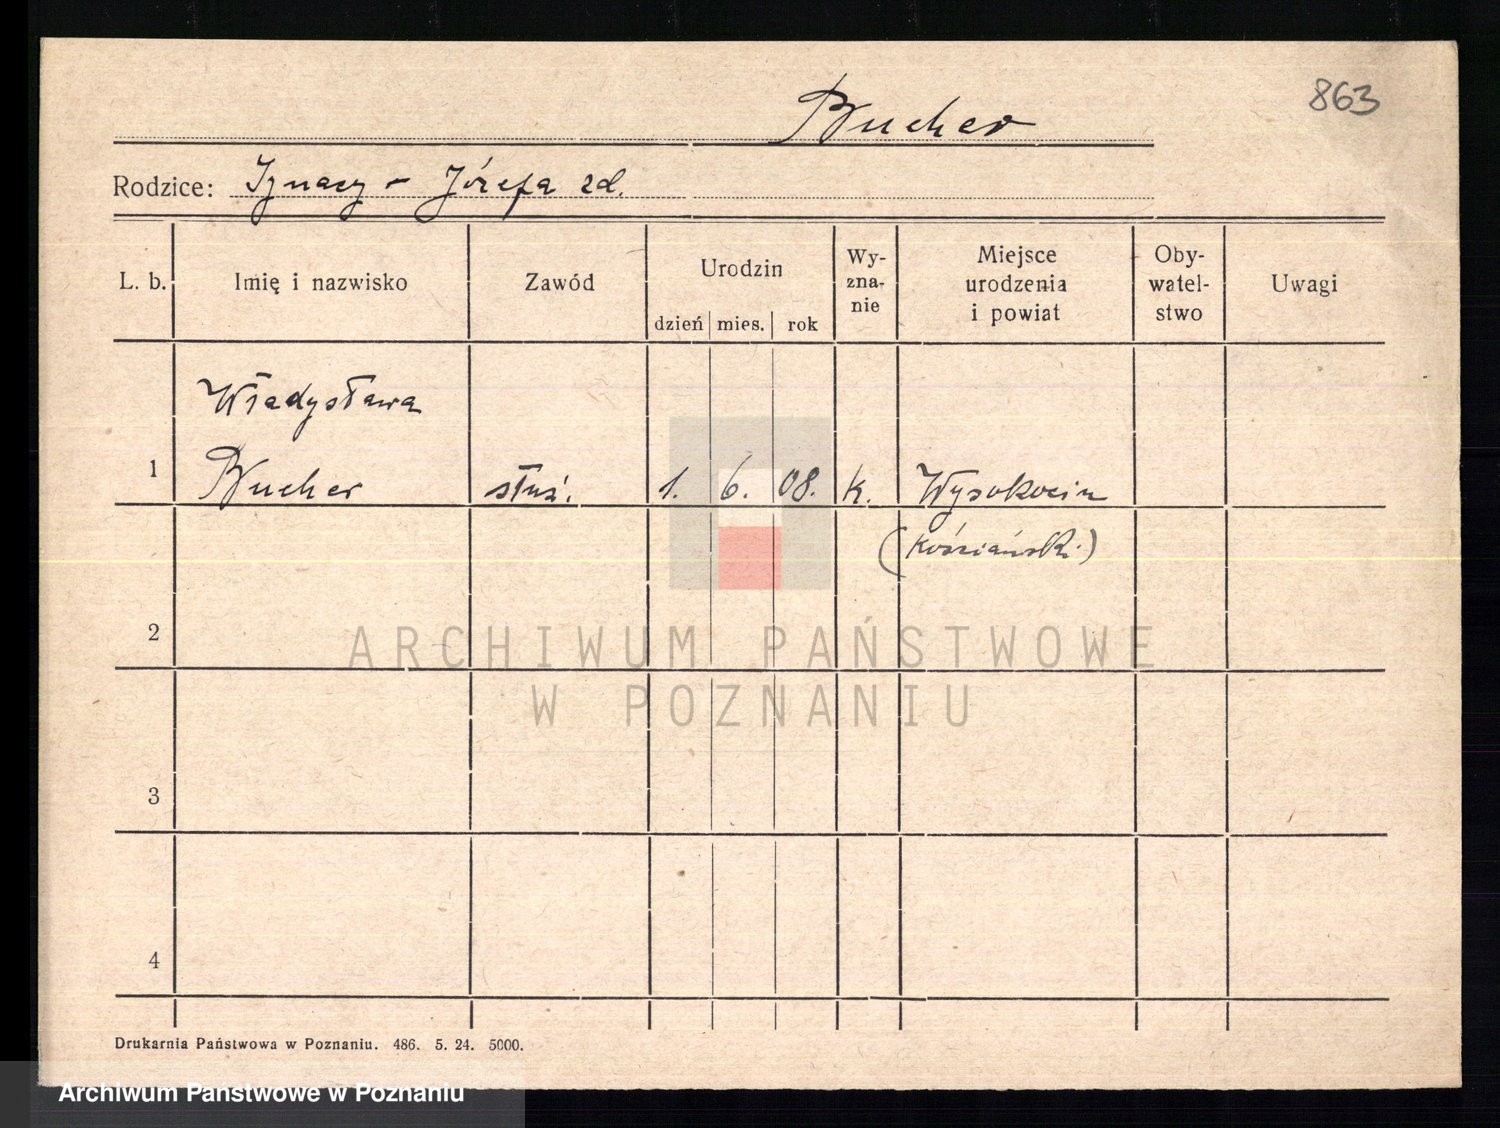 863
Bucher
Rodzice: Ignacy - Józefa zd.
L. b. Imię i nazwisko Zawód Urodzin dzień mies. rok Wy-zna-nie Miejsce urodzenia i powiat Oby-watel-stwo Uwagi
Władysława
1 Bucher służ. 1. 6. 08. k. Wysokocin
(kościański)
2
ARCHIWUM PAŃSTWOWE
W POZNANIU
3
4
Drukarnia Państwowa w Poznaniu. 486. 5. 24. 5000.
Archiwum Państwowe w Poznaniu